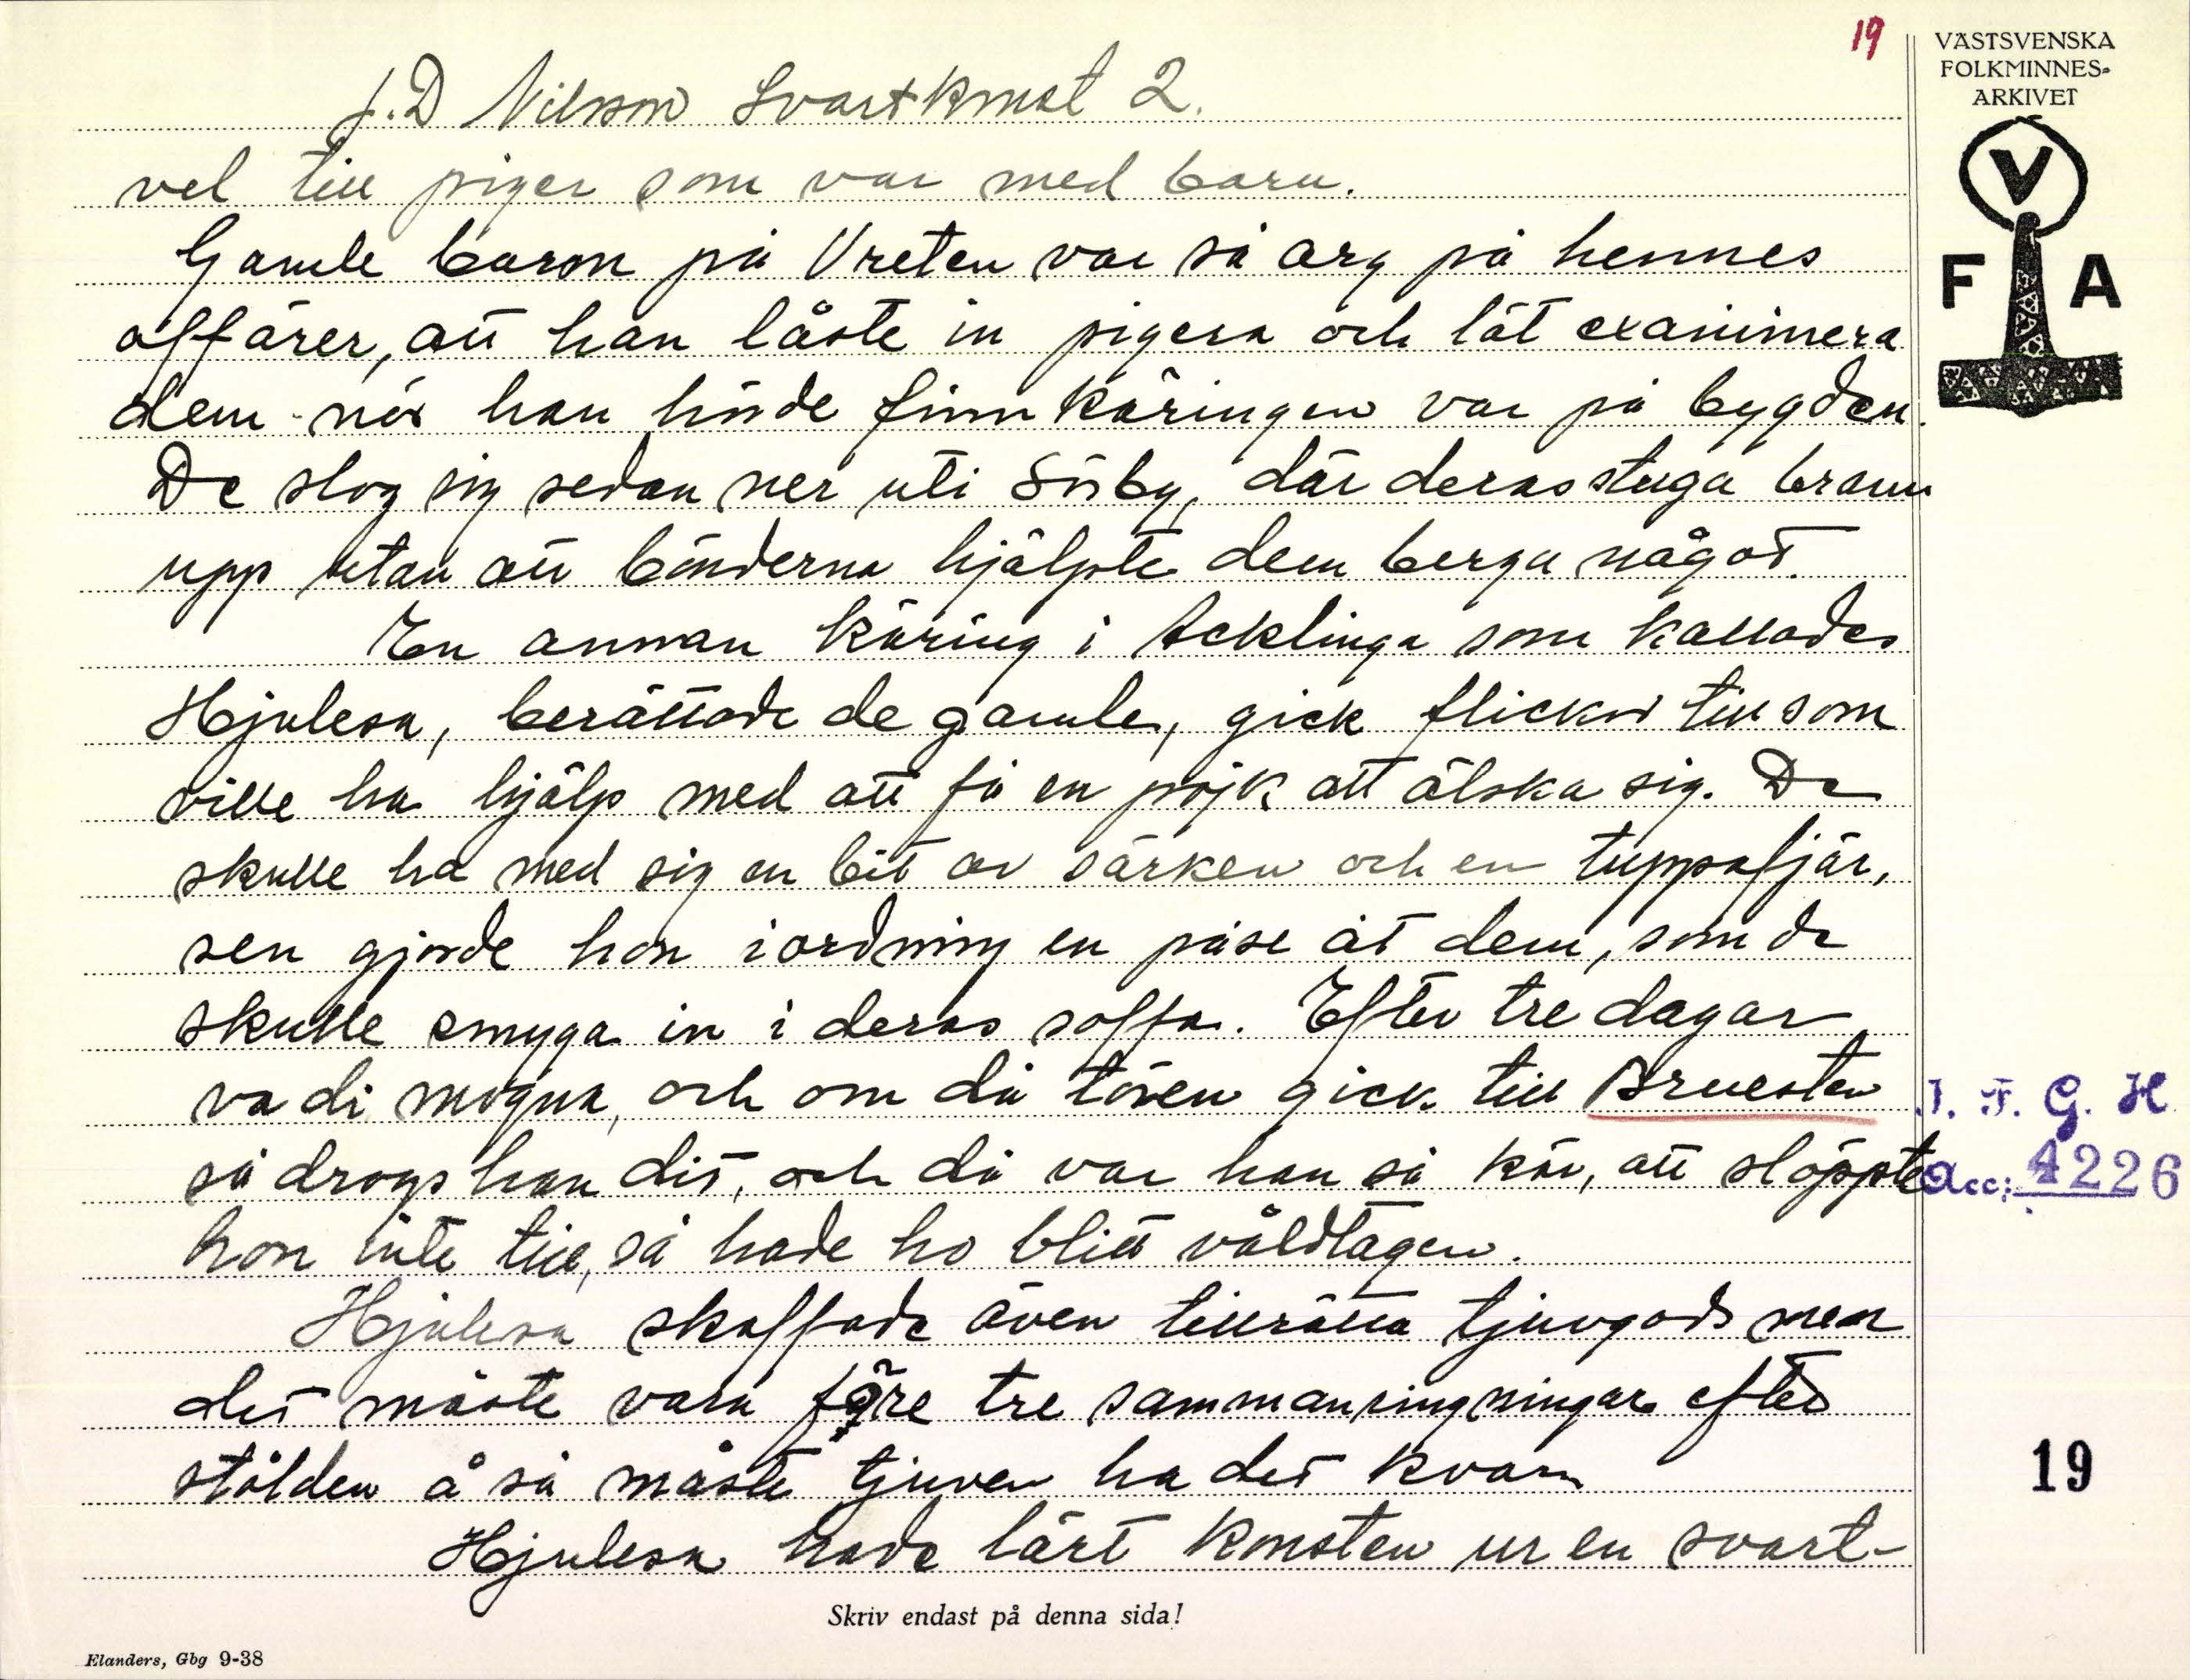 19
VÄSTSVENSKA
FOLKMINNES-
ARKIVET
V
F A
J.D Nilsson Svartkonst 2.
vel till piger som var med barn.
Gamle baron på Vreten var så arg på hennes
affärer, att han låste in pigera och lät examinera
dem när han hörde finnkäringen var på bygden.
De slog sig sedan ner uti Säby, där deras stuga brann
upp utan att bönderna hjälpte dem berga något.
En annan käring i Acklinga som kallades
Hjulesa, berättade de gamle, gick flickor till som
ville ha hjälp med att få en pojk att älska sig. De
skulle ha med sig en bit av särken och en tuppafjär,
sen gjorde hon iordning en påse åt dem, som de
skulle smyga in i deras soffa. Efter tre dagar
va di mogna, och om då tösen gick till
så drogs han dit, och då var han så kär, att släppte
hon inte till, så hade ho blitt våldtagen.
Hjulesa skaffade även tillrätta tjuvgods men
det måste vara före tre sammanringningar efter
stölden å så måste tjuven ha det kvar
Hjulesa hade lärt konsten ur en svart-
I. F. G. H
Acc: 4226
19
Skriv endast på denna sida!
Elanders, Gbg 9-38